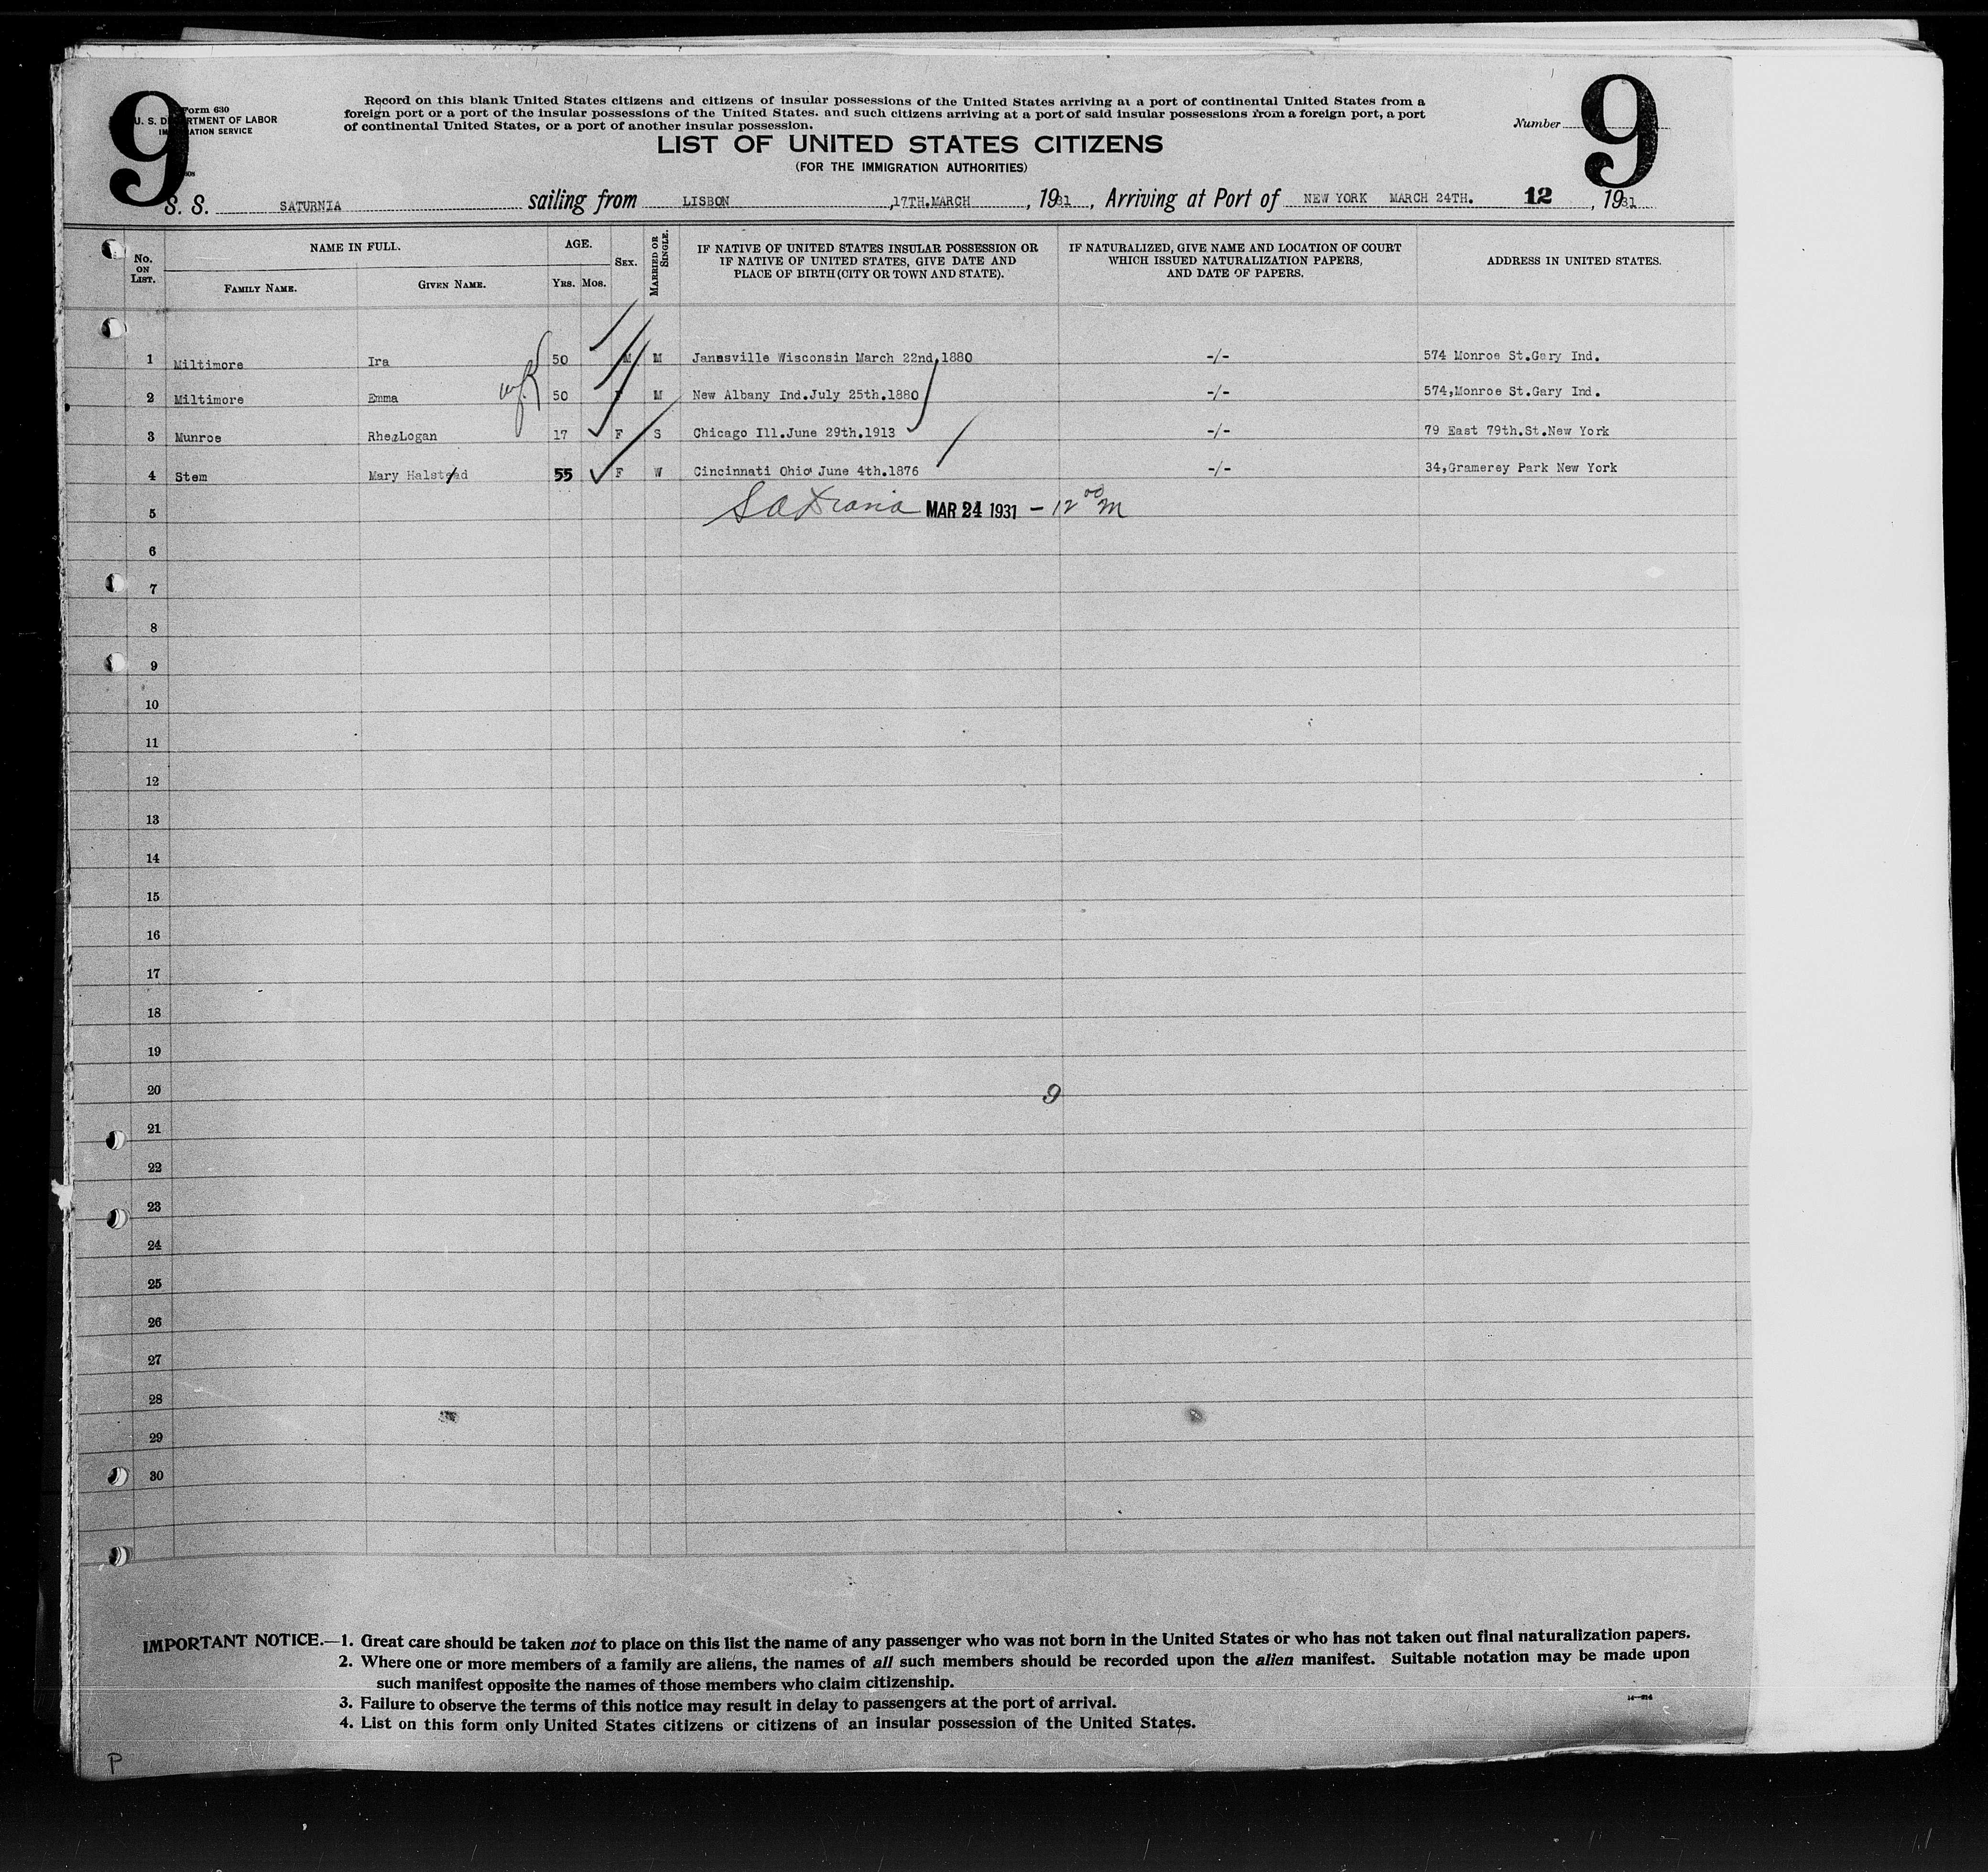 9
9
Form 630
U. S. DEPARTMENT OF LABOR
IMMIGRATION SERVICE
Record on this blank United States citizens and citizens of insular possessions of the United States arriving at a port of continental United States from a
foreign port or a port of the insular possessions of the United States. and such citizens arriving at a port of said insular possessions from a foreign port, a port
of continental United States, or a port of another insular possession.
Number
LIST OF UNITED STATES CITIZENS
(FOR THE IMMIGRATION AUTHORITIES)
S. S. SATURNIA sailing from LISBON ,17TH.MARCH , 1931 , Arriving at Port of NEW YORK MARCH 24TH. 12 , 1931
No. ON LIST. NAME IN FULL. FAMILY NAME. GIVEN NAME. AGE. YRS. MOS. SEX. MARRIED OR SINGLE. IF NATIVE OF UNITED STATES INSULAR POSSESSION OR IF NATIVE OF UNITED STATES, GIVE DATE AND PLACE OF BIRTH (CITY OR TOWN AND STATE). IF NATURALIZED, GIVE NAME AND LOCATION OF COURT WHICH ISSUED NATURALIZATION PAPERS, AND DATE OF PAPERS. ADDRESS IN UNITED STATES.
1 Miltimore Ira 50 M M Janesville Wisconsin March 22nd,1880 -/- 574 Monroe St.Gary Ind.
2 Miltimore Emma wf 50 F M New Albany Ind.July 25th.1880 -/- 574,Monroe St.Gary Ind.
3 Munroe Rhea Logan 17 F S Chicago Ill.June 29th.1913 -/- 79 East 79th.St.New York
4 Stem Mary Halstead 55 F W Cincinnati Ohio June 4th.1876 -/- 34,Gramerey Park New York
5 MAR 24 1931 - 12 00 M
6
7
8
9
10
11
12
13
14
15
16
17
18
19
20 9
21
22
23
24
25
26
27
28
29
30
IMPORTANT NOTICE.—1. Great care should be taken not to place on this list the name of any passenger who was not born in the United States or who has not taken out final naturalization papers.
2. Where one or more members of a family are aliens, the names of all such members should be recorded upon the alien manifest. Suitable notation may be made upon
such manifest opposite the names of those members who claim citizenship.
3. Failure to observe the terms of this notice may result in delay to passengers at the port of arrival.
4. List on this form only United States citizens or citizens of an insular possession of the United States.
P